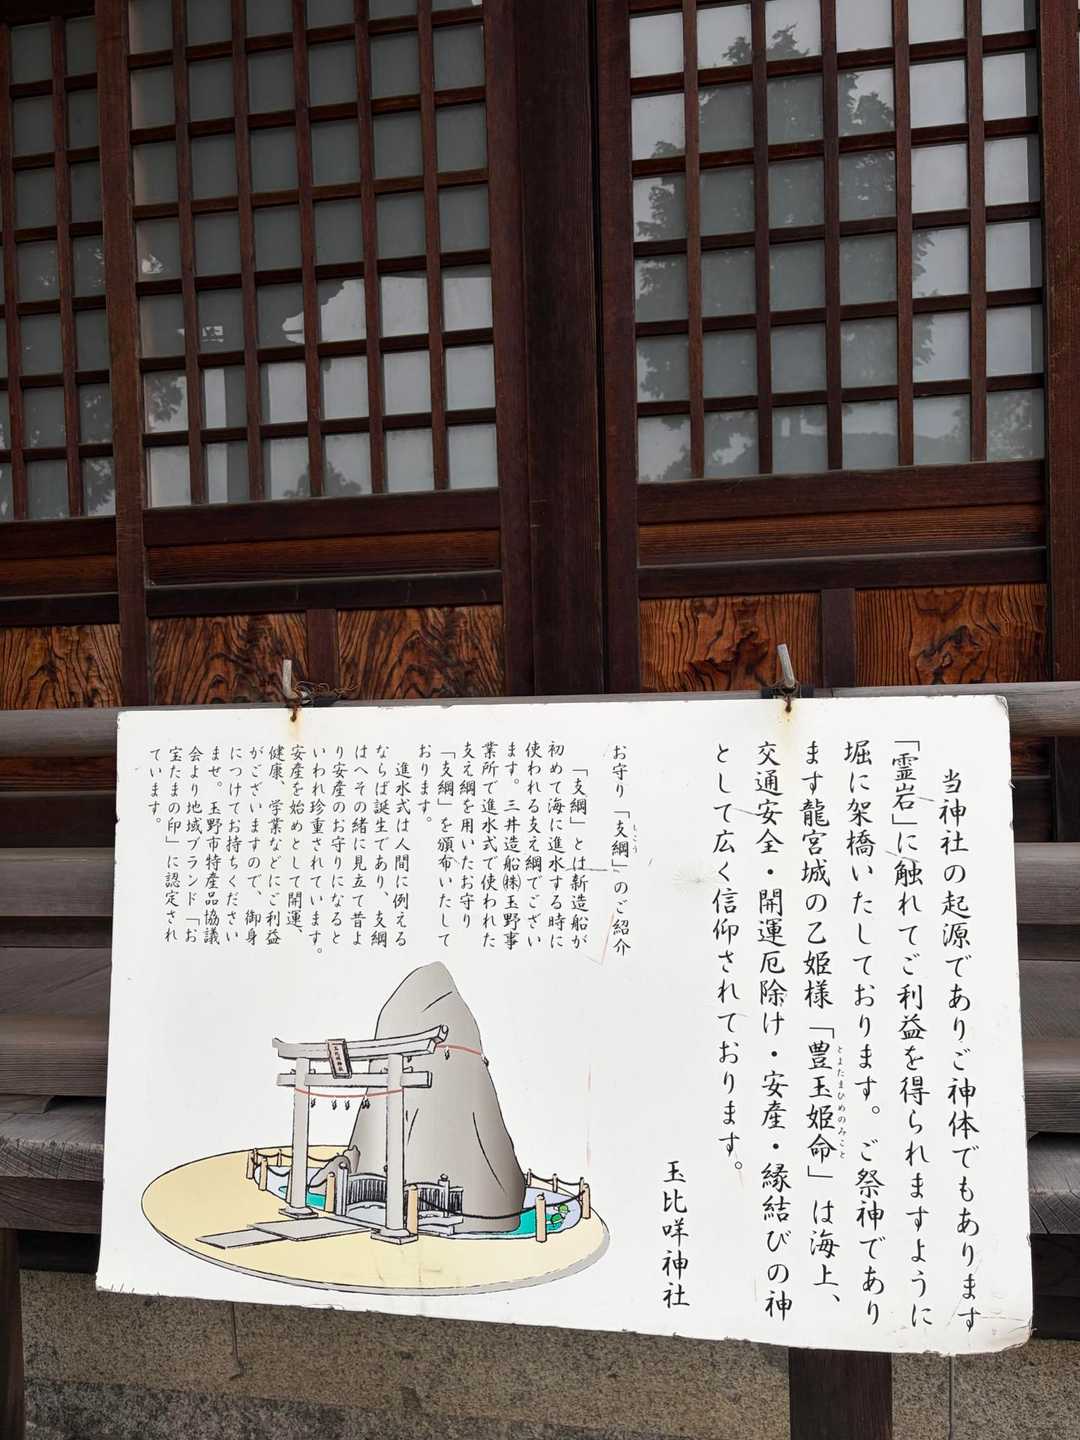 当神社の起源でありご神体でもあります
「霊岩」に触れてご利益を得られますように
堀に架橋いたしております。ご祭神であり
ます龍宮城の乙姫様「豊玉姫命」は海上、
とよたまひめのみこと
交通安全・開運厄除け・安産・縁結びの神
として広く信仰されております。
玉比咩神社
お守り「支綱」のご紹介
「支綱」とは新造船が
初めて海に進水する時に
使われる支え綱でござい
ます。三井造船㈱玉野事
業所で進水式で使われた
支え綱を用いたお守り
「支綱」を頒布いたして
おります。
進水式は人間に例える
ならば誕生であり、支綱
はへその緒に見立て昔よ
り安産のお守りになると
いわれ珍重されています。
安産を始めとして開運、
健康、学業などにご利益
がございますので、御身
につけてお持ちください
ませ。玉野市特産品協議
会より地域ブランド「お
宝たまの印」に認定され
ています。